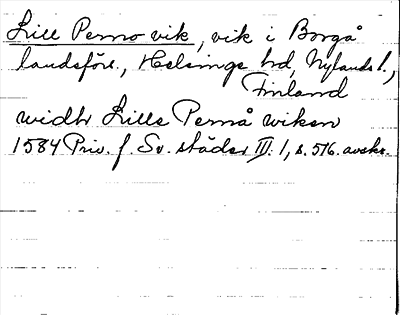 Lill Perno vik, vik i Borgå
landsförs., Helsinge hd, Nylands l.,
Finland
widh Lille Pernå wiken
1584 Priv. f. Sv. städer III. 1, s. 516. avskr.